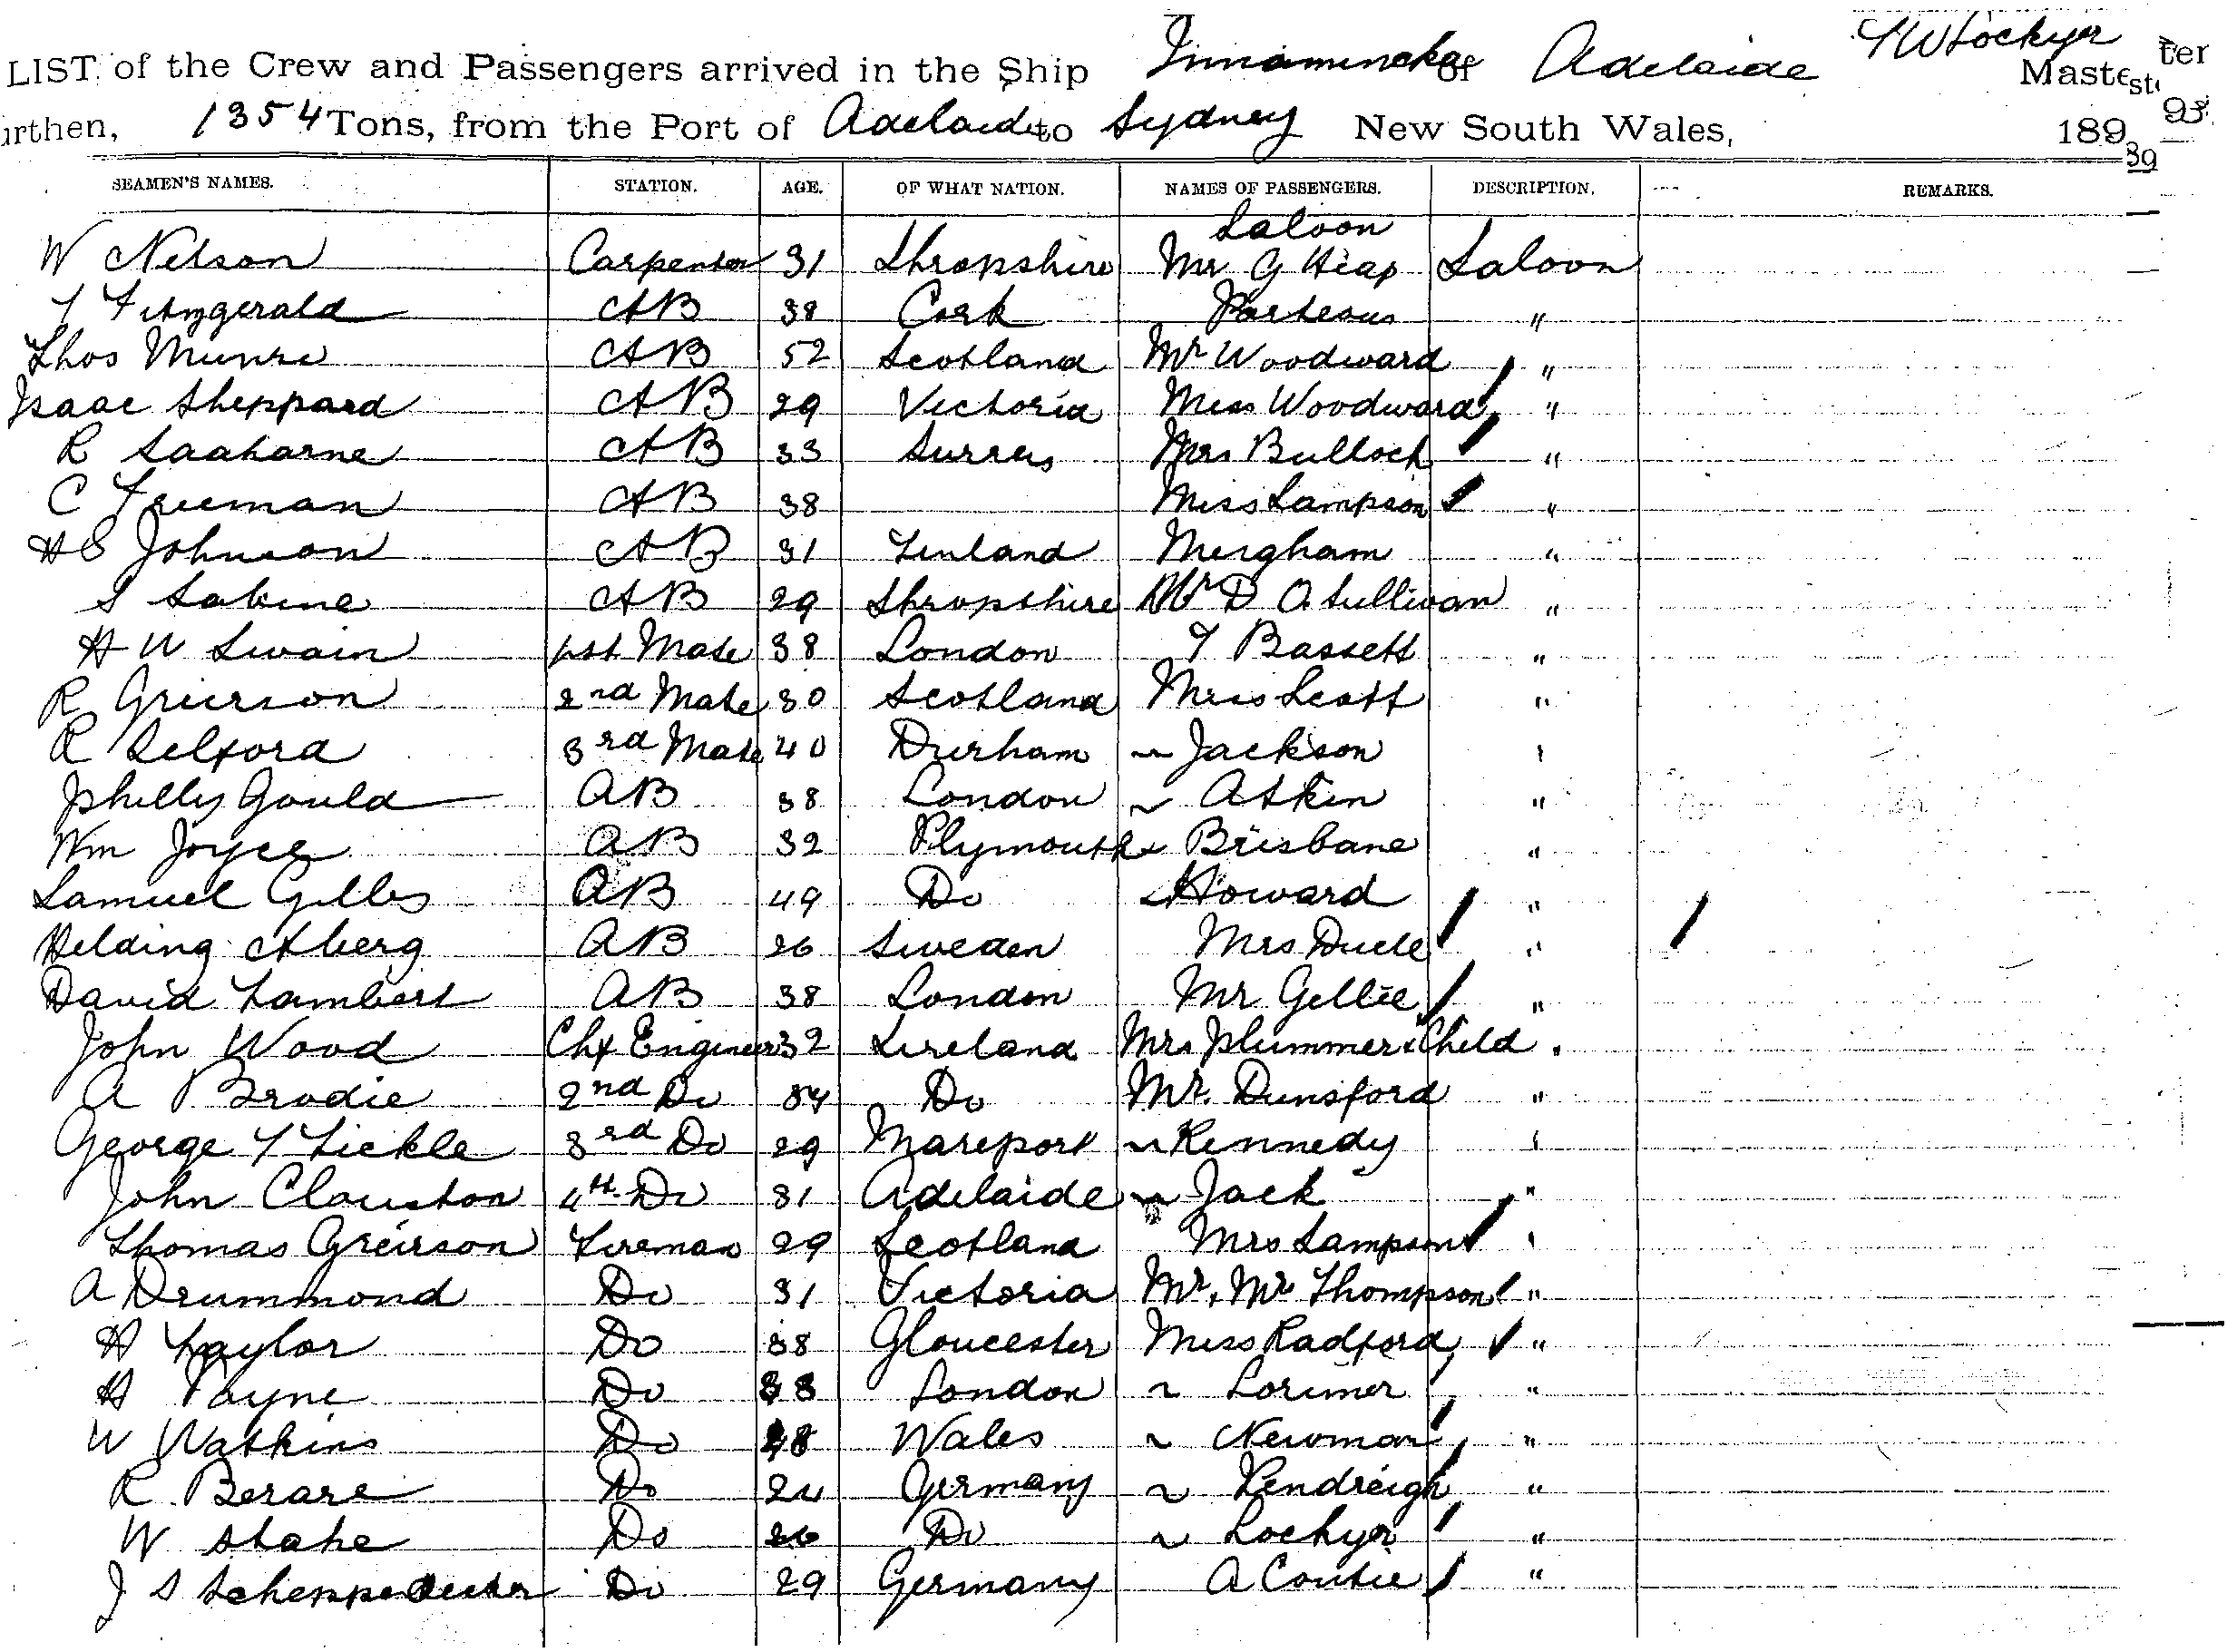 LIST of the Crew and Passengers arrived in the Ship Innamincka of Adelaide T W Lockyer Master
urthen, 1354 Tons, from the Port of Adelaide to Sydney New South Wales, 189
SEAMEN'S NAMES. STATION. AGE. OF WHAT NATION. NAMES OF PASSENGERS. DESCRIPTION. REMARKS.
Saloon
W Nelson Carpenter 31 Shropshire Mr G Heap Saloon
T Fitzgerald AB 38 Cork Porteous "
Thos Munro AB 52 Scotland Mr Woodward "
Isaac Sheppard AB 29 Victoria Miss Woodward "
R AB 33 Surrey Mrs Bullock "
C Freeman AB 38 Miss Sampson "
H S Johnson AB 31 Finland Mergham "
S Sabine AB 29 Shropshire Mr D O Sullivan "
H W Swain 1st Mate 38 London T Bassett "
R Grierson 2nd Mate 30 Scotland Miss Scott "
R Selford 3rd Mate 40 Durham " Jackson "
Phillip Gould AB 38 London " Atkin "
Wm Joyce AB 32 Plymouth " Brisbane "
Samuel Gilles AB 49 Do " Howard "
Helding Aberg AB 26 Sweden Mrs "
David Lambert AB 38 London Mr Gellie "
John Wood Chf Engineer 32 Ireland Mrs Plummer & Child "
A Brodie 2nd Do 34 Do Mr. Dunsford "
George T Tickle 3rd Do 29 Mareport " Kennedy "
John Clouston 4th Do 31 Adelaide " Jack "
Thomas Greirson Fireman 29 Scotland Mrs Sampson "
A Drummond Do 31 Victoria Mr, Mrs Thompson "
H Taylor Do 38 Gloucester Miss Radford "
H Payne Do London " Lorimer "
W Watkins Do Wales " Newman "
R Berare Do 24 Germany " Pendreigh "
W Stahe Do 26 Do " Lockyer "
J S Do 29 Germany A Coutie "